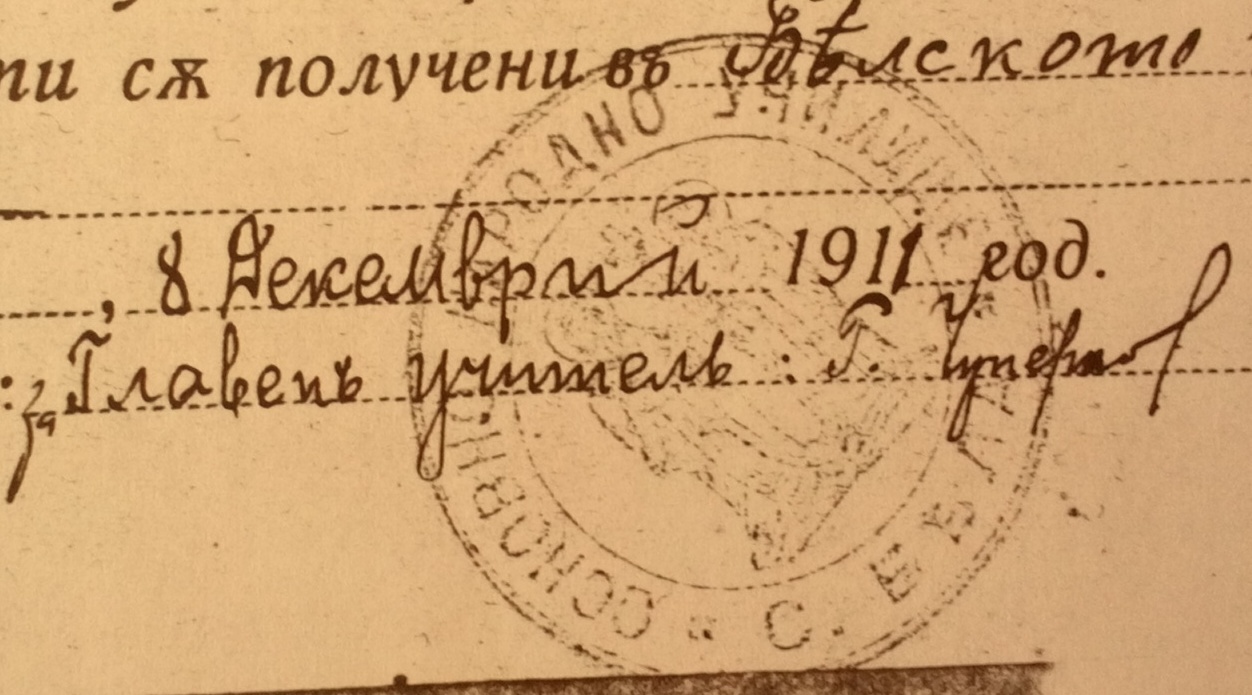 сѫ получени въ Бѣлското
, 8 Декемврий 1911 год.
: за Главенъ учитель : Г.
ОСНОВНО НАРОДНО УЧИЛИЩЕ
С.